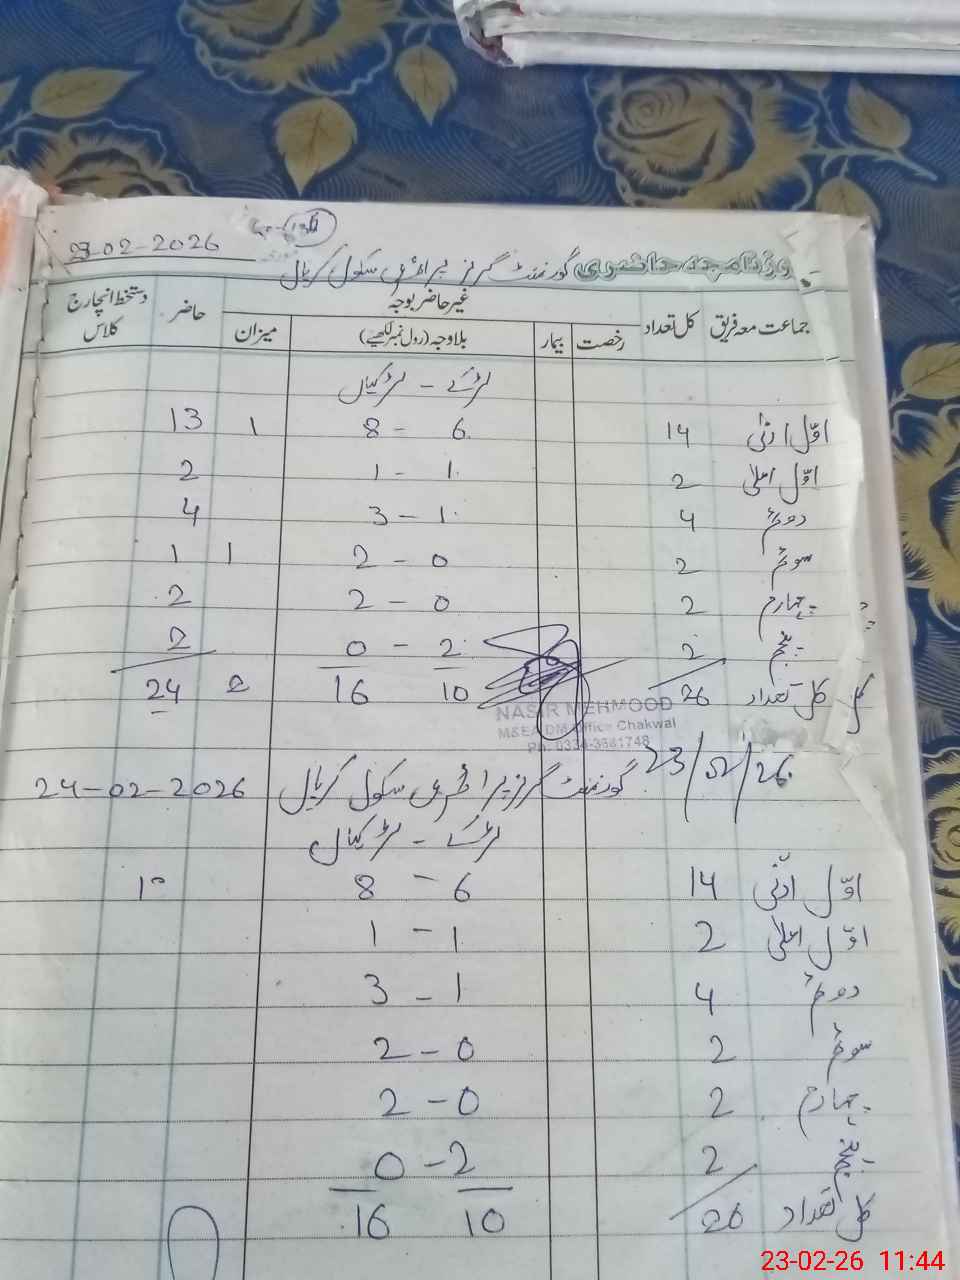 23-02-2026
روزنامچہ حاضری گورنمنٹ گرلز پرائمری سکول کریال
جماعت معہ فریق کل تعداد غیر حاضر بوجہ حاضر دستخط انچارج کلاس
رخصت بیمار بلاوجہ (رول نمبر لکھیے) میزان
لڑکے - لڑکیاں
اوّل ادنٰی 14 6 - 8 1 13
اوّل اعلٰی 2 1 - 1 2
دوئم 4 1 - 3 4
سوئم 2 0 - 2 1 1
چہارم 2 0 - 2 2
پنجم 2 2 - 0 2
کل تعداد 26 10 16 2 24
NASIR MEHMOOD
M&EA DM Office Chakwal
Ph: 0334-3881748
23/02/26
گورنمنٹ گرلز پرائمری سکول کریال 24-02-2026
لڑکے - لڑکیاں
اوّل ادنٰی 14 6 - 8 1
اوّل اعلٰی 2 1 - 1
دوئم 4 1 - 3
سوئم 2 0 - 2
چہارم 2 0 - 2
پنجم 2 2 - 0
کل تعداد 26 10 16
23-02-26 11:44